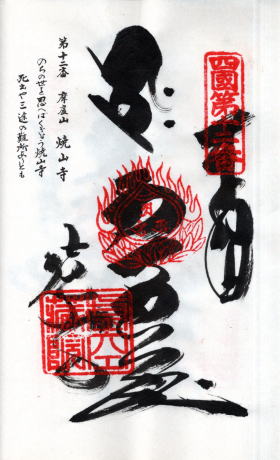 四國第十二番
奉納
虚空蔵
焼山寺
第十二番 摩廬山 焼山寺
のちの世を思へばくぎやう焼山寺
死出や三途の難所ありとも